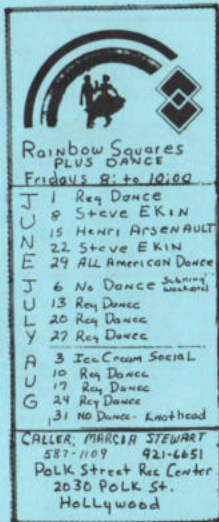 Rainbow Squares
PLUS DANCE
Fridays 8: to 10:00
JUNE
1 Reg Dance
8 Steve EKIN
15 HENRI ARSENAULT
22 Steve EKIN
29 ALL American Dance
JULY
6 No Dance weekend
13 Reg Dance
20 Reg Dance
27 Reg Dance
AUG
3 Ice Cream Social
10 Reg Dance
17 Reg Dance
24 Reg Dance
31 NO Dance- Knothead
CALLER; MARCIA STEWART
587-1109 921-6651
Polk Street Rec Center
2030 POLK ST.
Hollywood